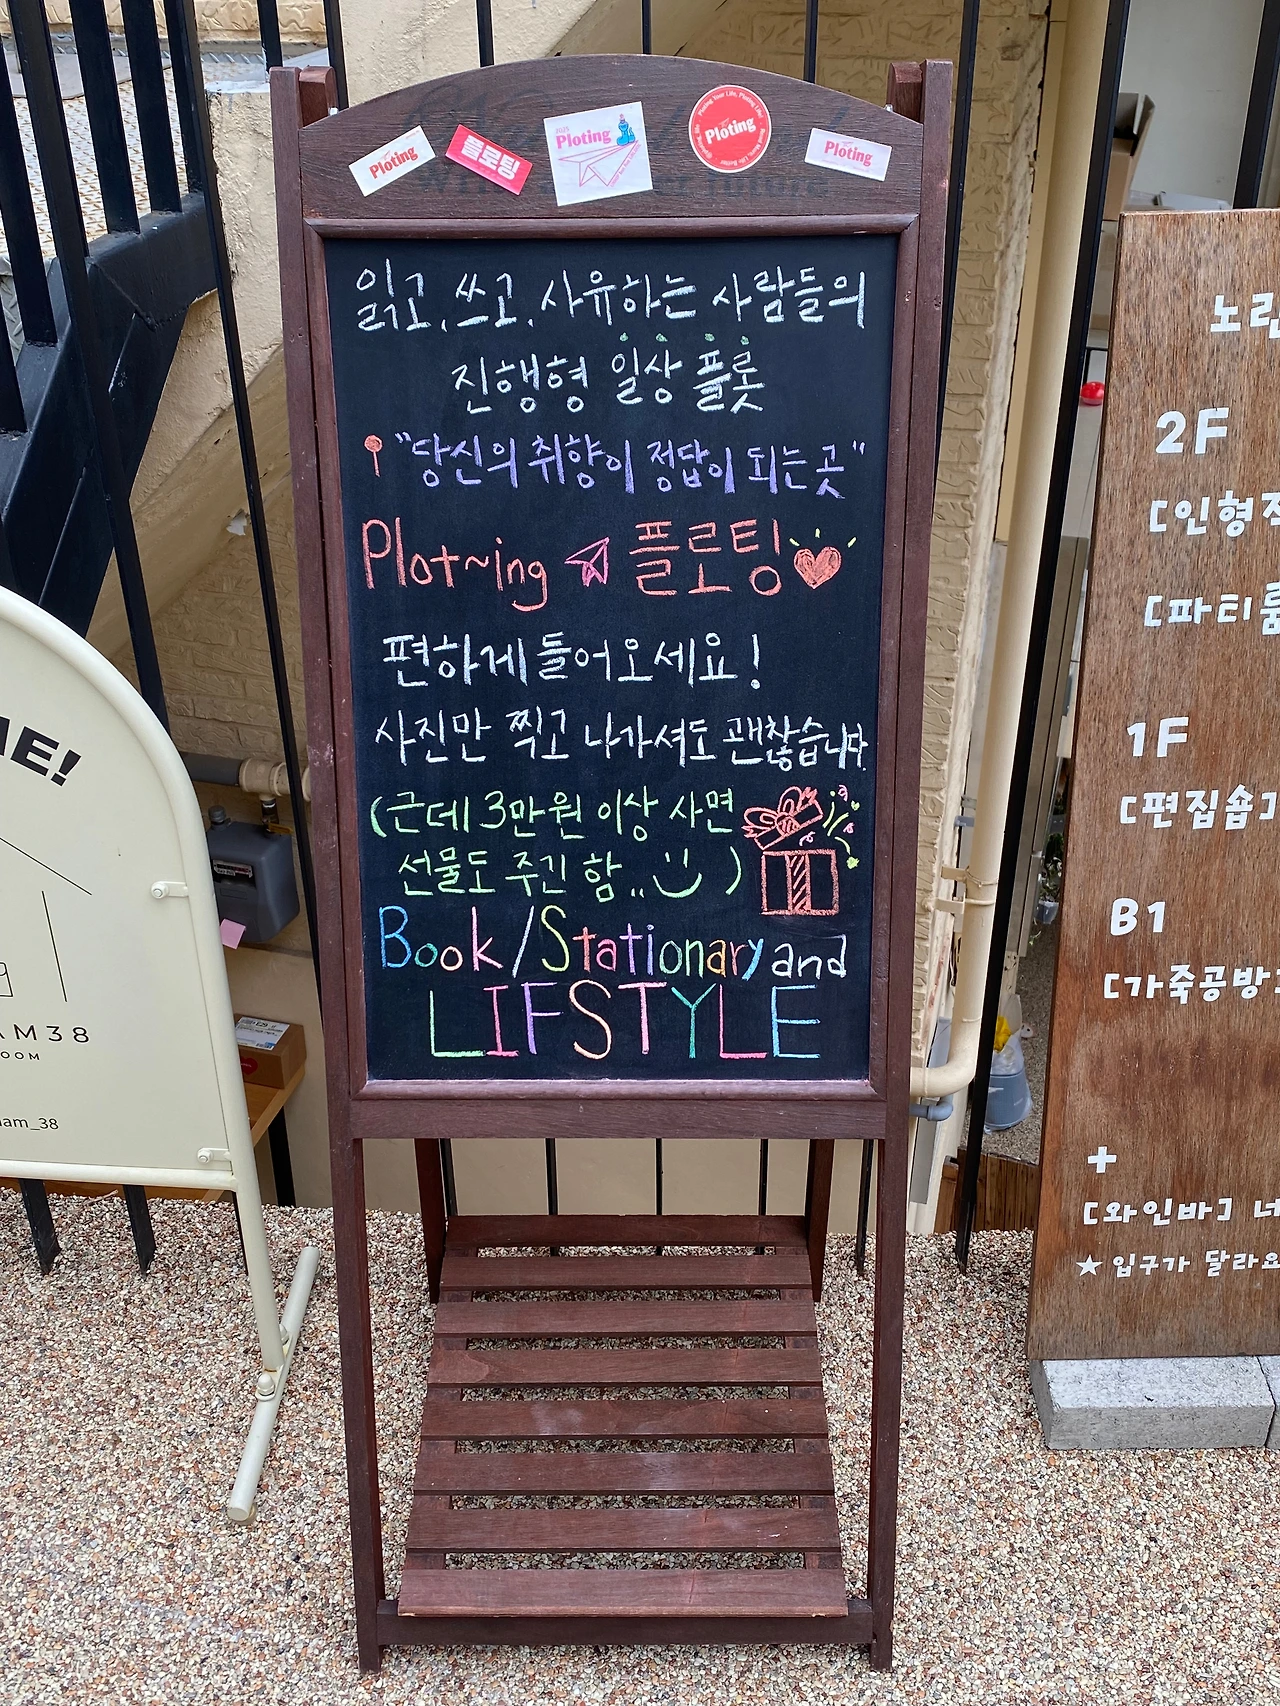 Ploting
플로팅
Ploting
Ploting
Ploting Your Life, Ploting Life!
Ploting
읽고, 쓰고, 사유하는 사람들의
진행형 일상 플롯
"당신의 취향이 정답이 되는 곳"
Plot~ing 플로팅
편하게 들어오세요!
사진만 찍고 나가셔도 괜찮습니다.
(근데 3만원 이상 사면
선물도 주긴 함.. )
Book/Stationary and
LIFSTYLE
ME!
AM38
OOM
am_38
노란
2F
[인형
[파티룸
1F
[편집숍]
B1
[가죽공방]
+
[와인바] 너
★ 입구가 달라요